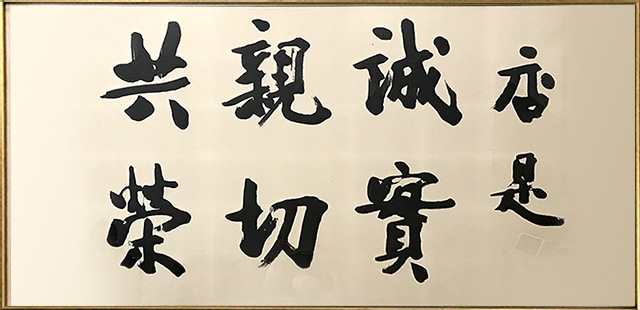 店是
誠實
親切
共榮